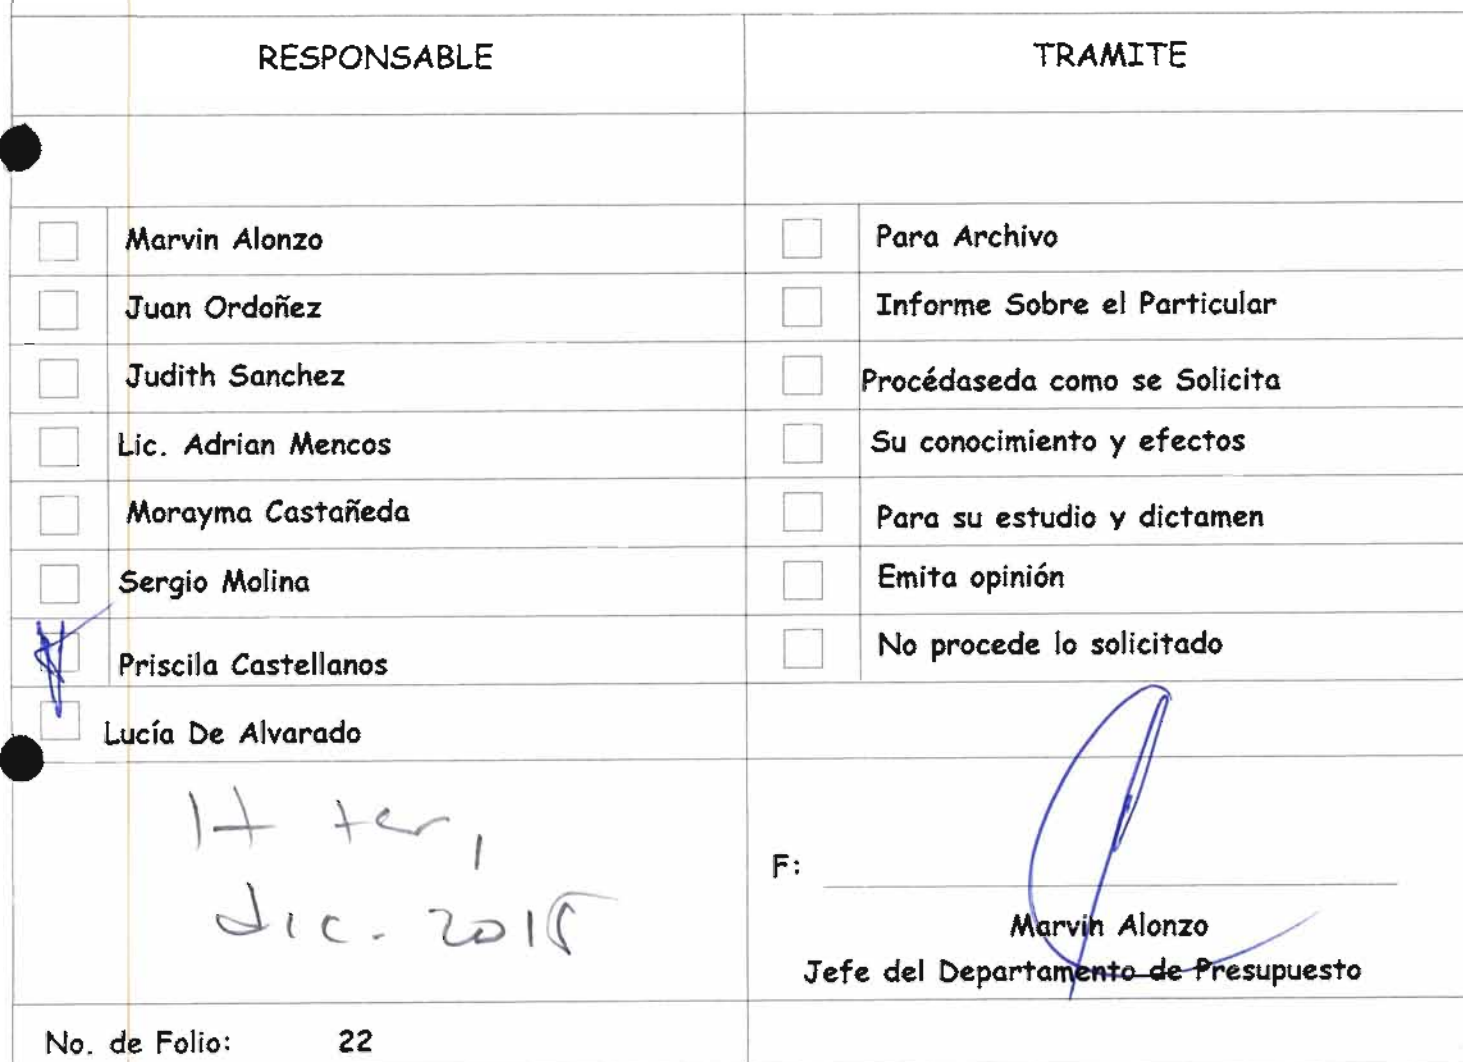 RESPONSABLE
TRAMITE
Marvin Alonzo
Para Archivo
Juan Ordoñez
Informe Sobre el Particular
Judith Sanchez
Procédaseda como se Solicita
Lic. Adrian Mencos
Su conocimiento y efectos
Morayma Castañeda
Para su estudio y dictamen
Sergio Molina
Emita opinión
Priscila Castellanos
No procede lo solicitado
Lucía De Alvarado
dic.
F:
Marvin Alonzo
Jefe del Departamento de Presupuesto
No. de Folio: 22